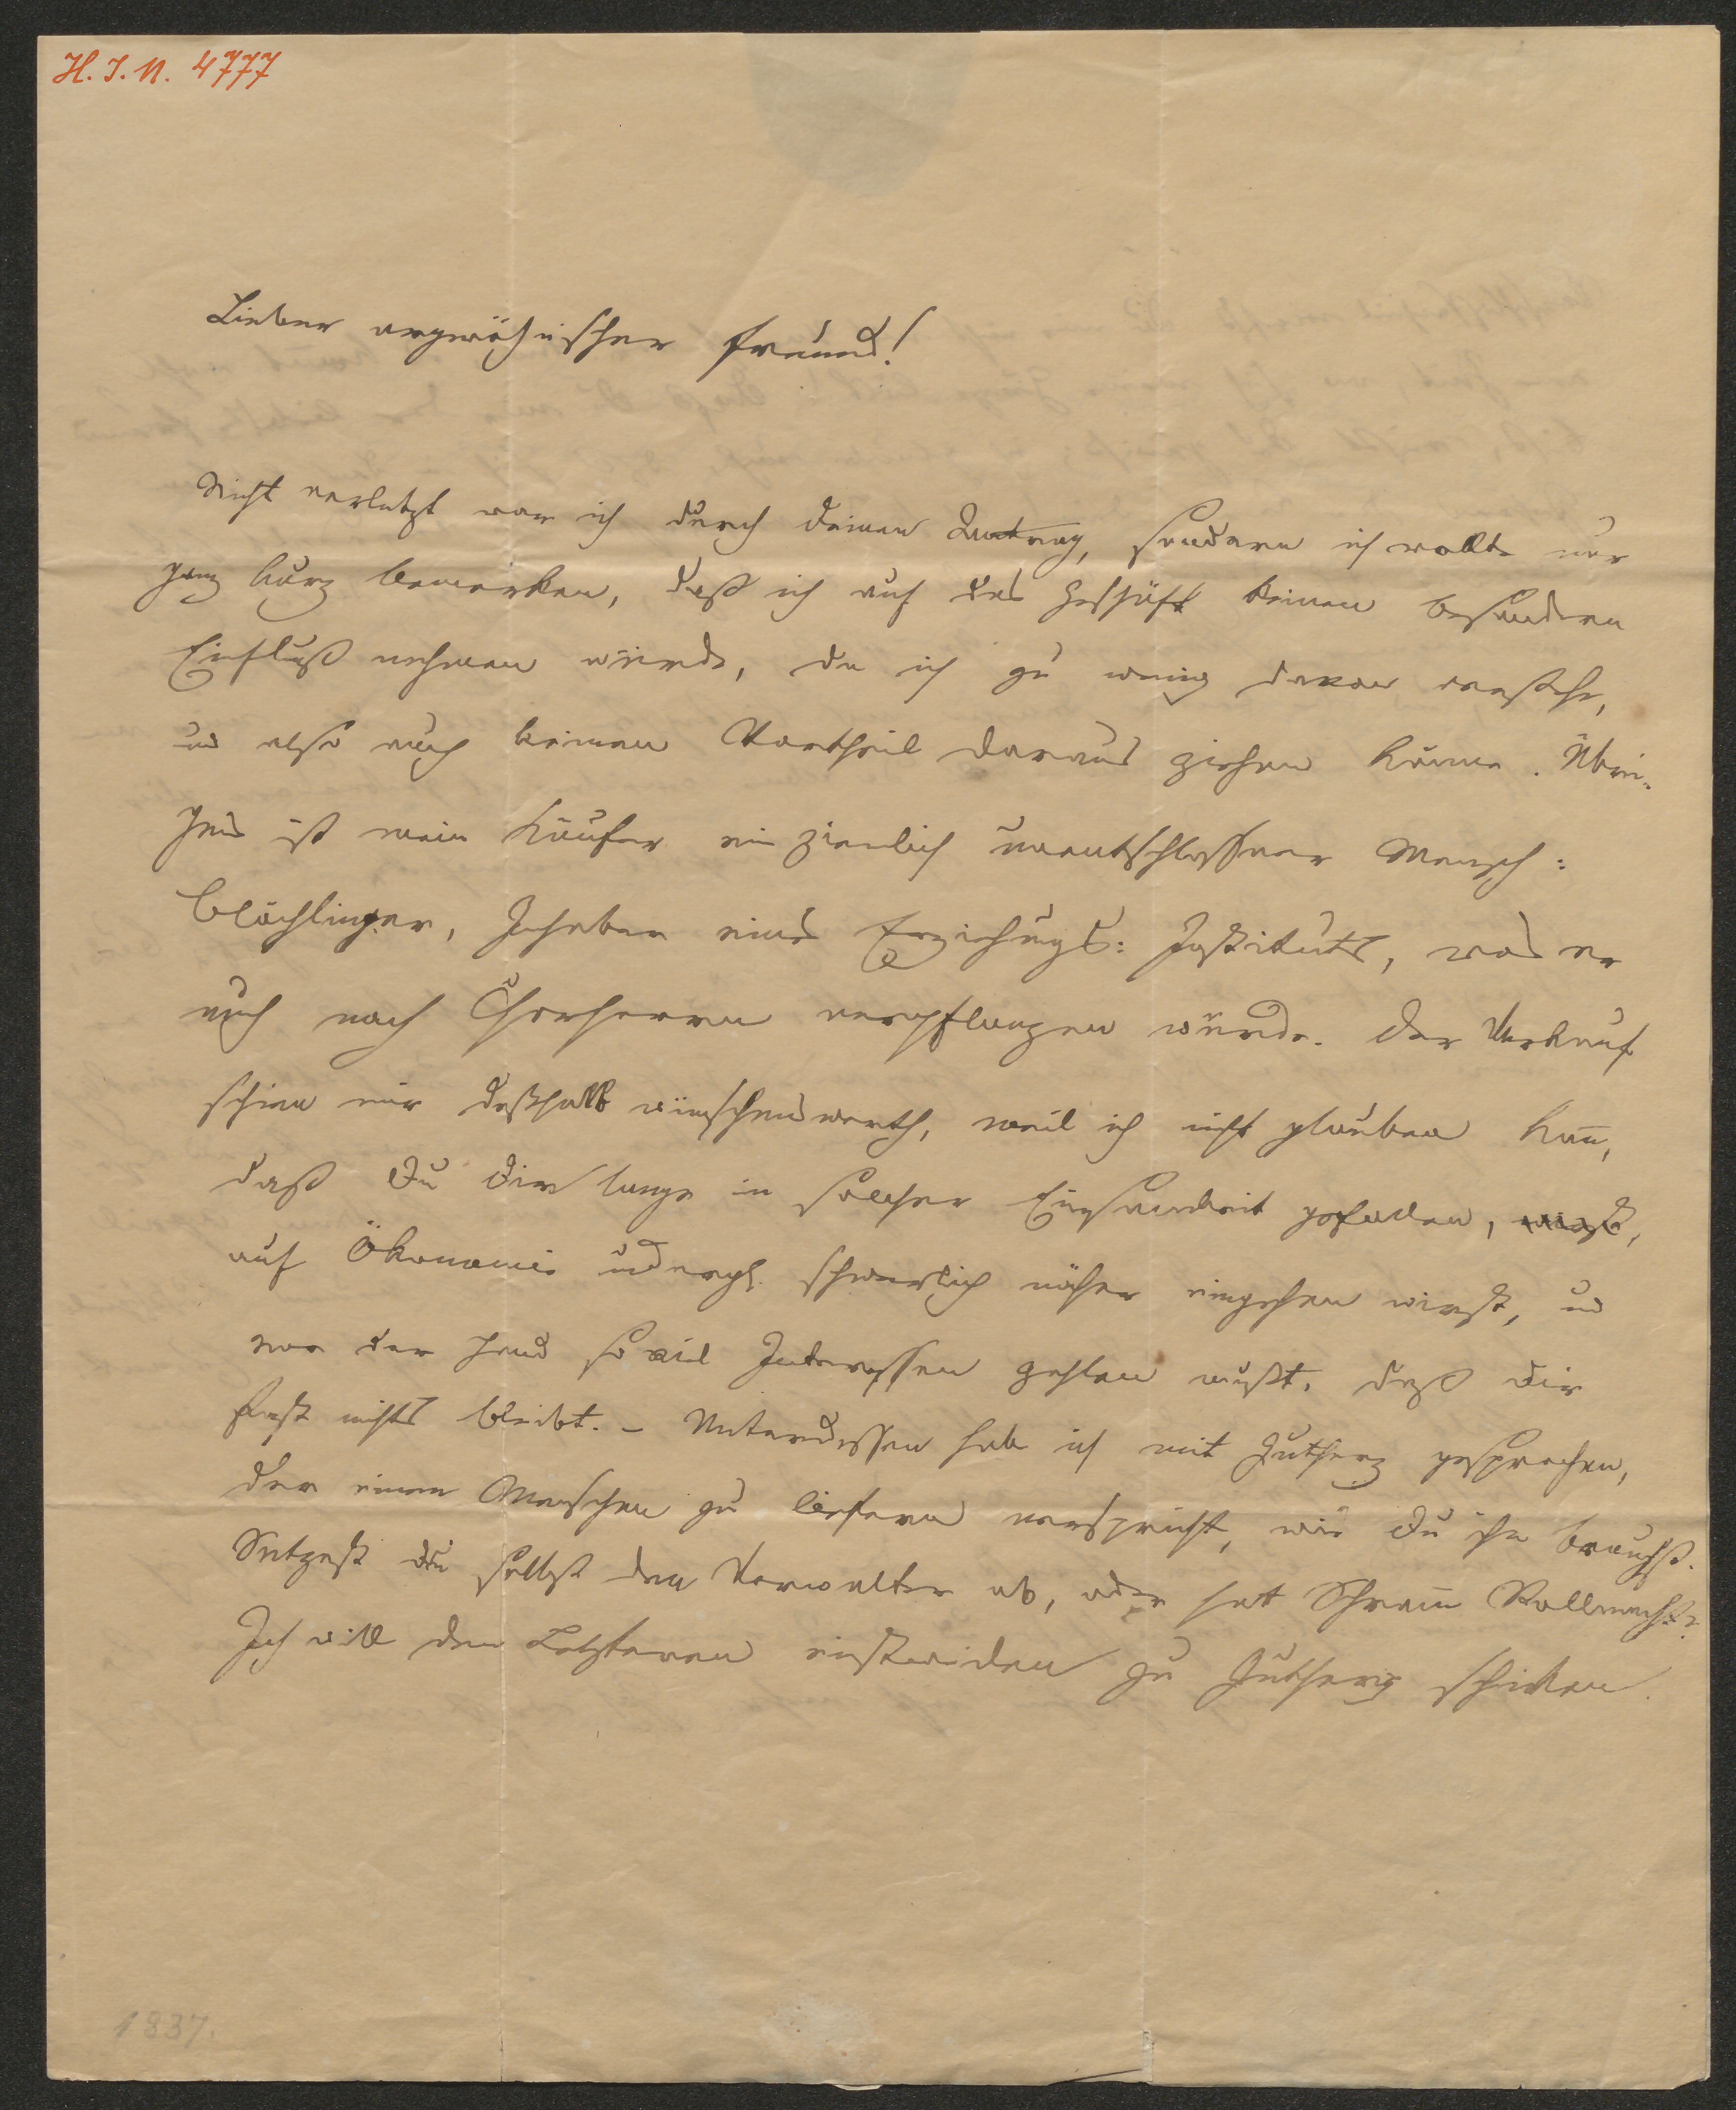 H. I. N. 4777
Lieber argwöhnischer Freund!
Nicht verletzt war ich durch Deinen Antrag, sondern ich wollte nur
ganz kurz bemerken, daß ich auf das Geschäft keinen besondern
Einfluß nehmen würde, da ich zu wenig davon verstehe,
und also auch keinen Vortheil daraus ziehen könne. Übri-
gens ist mein Käufer ein ziemlich unentschlossner Mensch:
Blöchlinger, Inhaber eines Erziehungs: Instituts, was er
auch nach Chorherrn verpflanzen würde. Der Verkauf
schien mir deßhalb wünschenswerth, weil ich nicht glauben kan̄,
daß Du Dir lange in solcher Einsamkeit gefallen, wirst,
auf Ökonomie u dergl. schwerlich näher eingehen wirst, und
vor der Hand so viel Interessen zahlen mußt, daß Dir
fast nichts bleibt. – Unterdessen hab ich mit Gutherz gesprochen,
der einen Menschen zu liefern verspricht, wie Du ihn brauchst.
Setzest Du selbst den Verwalter ab, oder hat Schram̄ Vollmacht?
Ich will den Letzteren einstweilen zu Gutherz schicken.
1837.